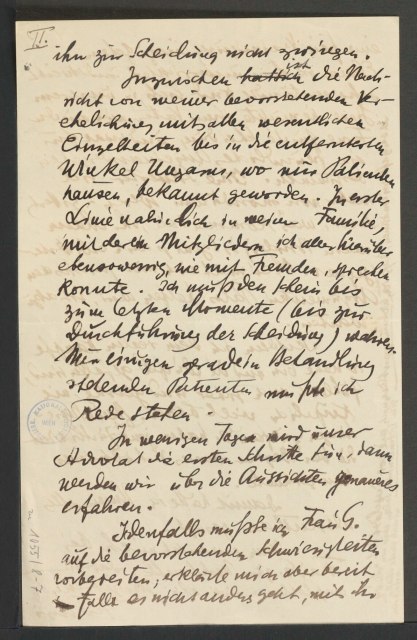 II.
ihn zur Scheidung nicht zwingen.
Inzwischen hatte sich ist die Nach-
richt von meiner bevorstehenden Ver-
ehelichung mit allen wesentlichen
Einzelheiten bis in die entferntesten
Winkel Ungarns, wo nur Patienten
hausen, bekannt geworden. In erster
Linie natürlich in meiner Familie,
mit deren Mitgliedern ich aber hierüber
ebensowenig, wie mit Fremden, sprechen
konnte. Ich muß den Schein bis
zum letzten Momente (bis zur
Durchführung der Scheidung) wahren.
Nur einigen gerade in Behandlung
stehenden Patienten mußte ich
Rede stehen.
In wenigen Tagen wird unser
Advokat die ersten Schritte tun; dann
werden wir über die Aussichten genaueres
erfahren.
Jedenfalls mußte ich Frau G.
auf die bevorstehenden Schwierigkeiten
vorbereiten, erklärte mich aber bereit
falls es nicht anders geht, mit ihr
WIEN
1055/8-7